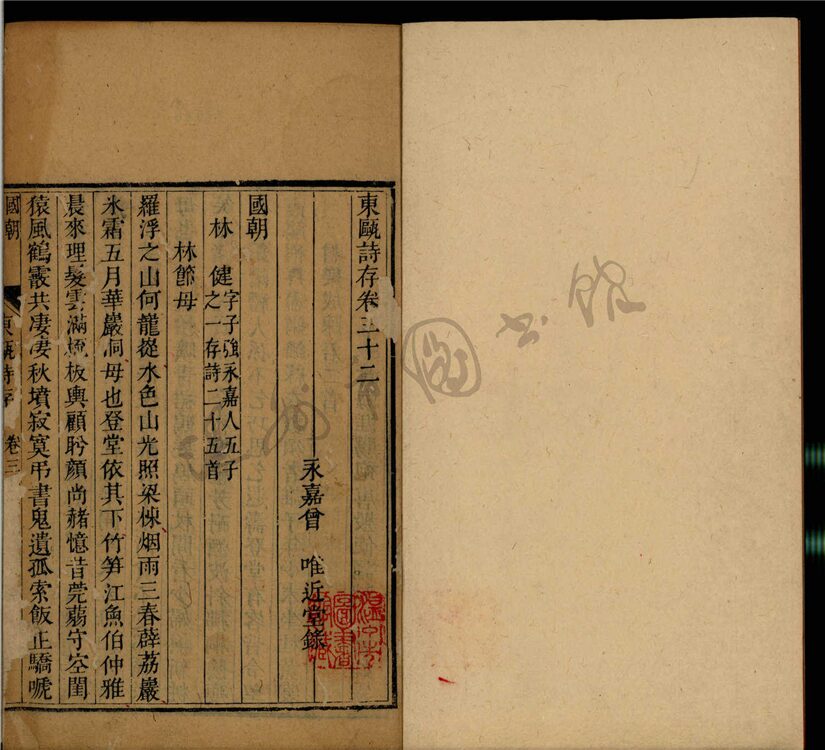 東甌詩存卷三十二
永嘉曾 唯近堂錄
國朝
林 健字子強永嘉人五子
之一存詩二十五首
林節母
羅浮之山何巃嵷水色山光照梁棟烟雨三春薜荔巖
氷霜五月華巖洞母也登堂依其下竹笋江魚伯仲雅
晨來理髮雲滿梳板輿顧盻顏尚赭憶昔莞蒻守空閨
猿風鶴霰共淒淒秋墳寂寞弔書鬼遺孤索飯正驕嗁
國朝
東甌詩存
卷三
圖書館